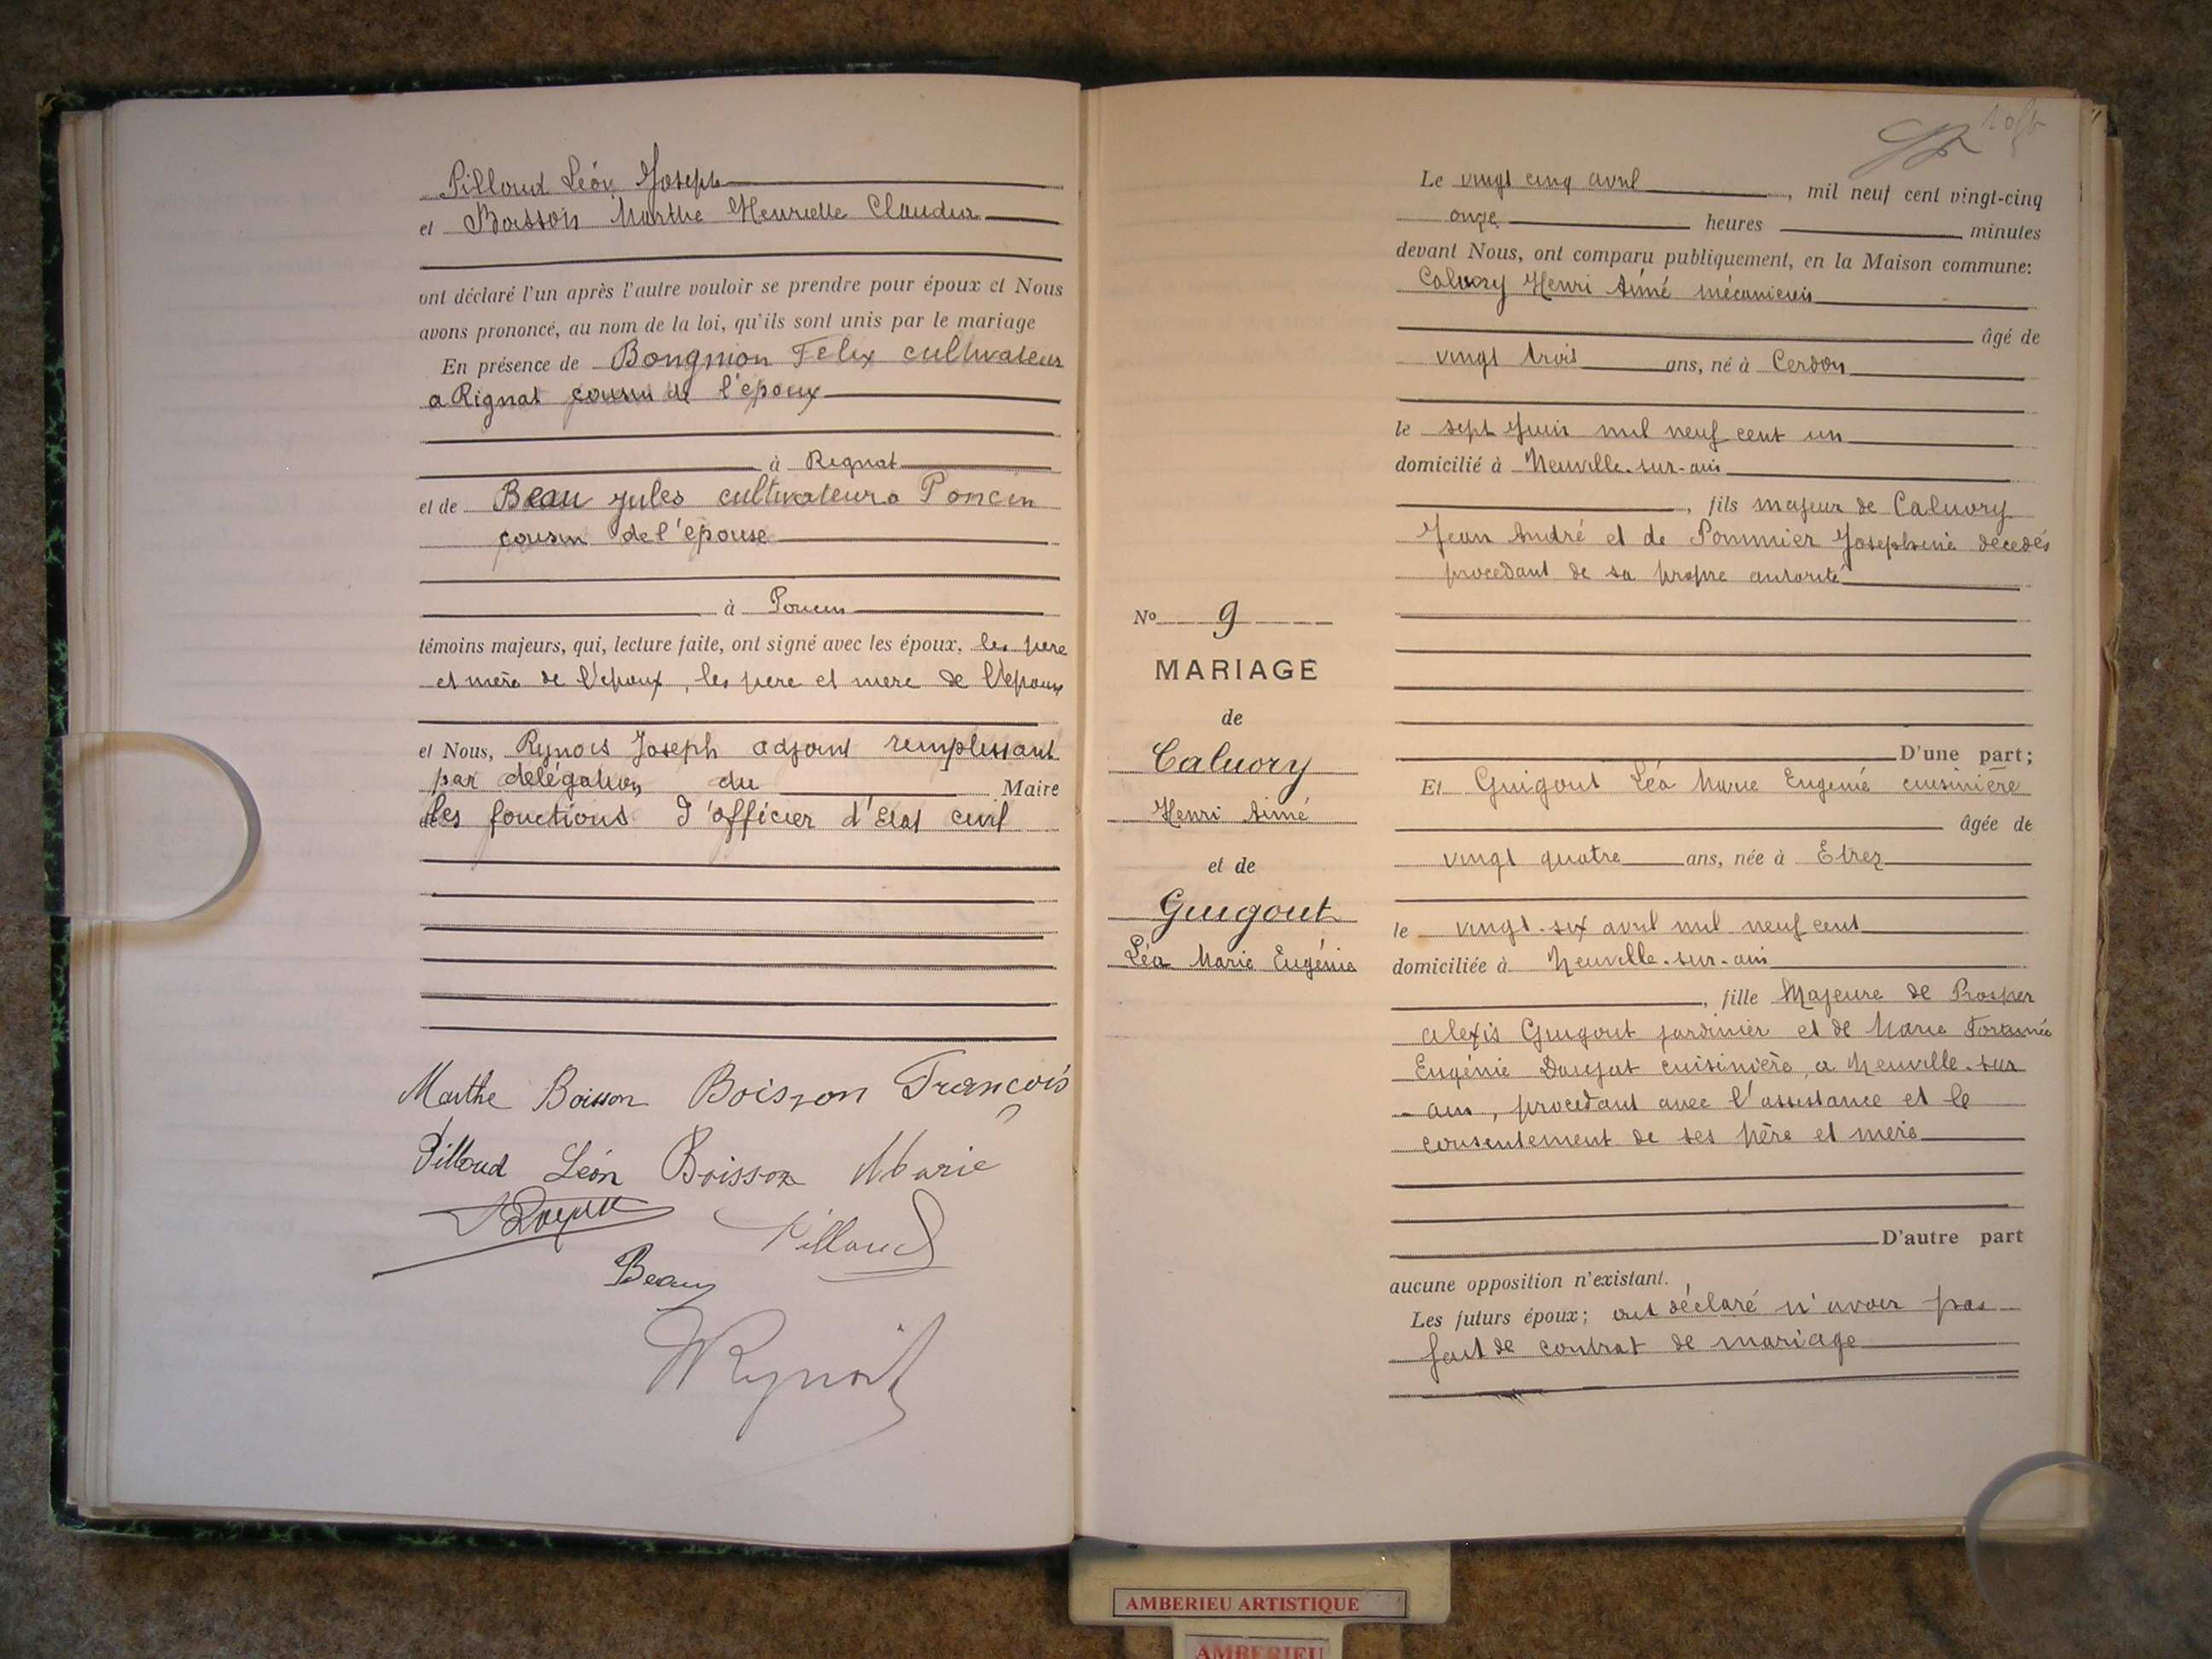 Pilloud Léon Joseph
et Boisson Marthe Henriette Claudia
ont déclaré l'un après l'autre vouloir se prendre pour époux et Nous
avons prononcé, au nom de la loi, qu'ils sont unis par le mariage
En présence de Bongnion Felix cultivateur
a Rignat cousin de l'époux
à Rignat
et de Beau jules cultivateur a Poncin
cousin de l'épouse
à Poncin
témoins majeurs, qui, lecture faite, ont signé avec les époux, les pere
et mère de l'époux, les pere et mere de l'épouse
et Nous, Rynois Joseph adjoint remplissant
par délégation du Maire
les fonctions d'officier d'Etat civil
Marthe Boisson Boisson François
Pilloud Léon Boisson Marie
Pilloud
Beau
Rynois
Le vingt cinq avril, mil neuf cent vingt-cinq
onze heures minutes
devant Nous, ont comparu publiquement, en la Maison commune:
Caluory Henri Aimé mécanicien
âgé de
vingt trois ans, né à Cerdon
le sept juin mil neuf cent un
domicilié à Neuville-sur-ain
, fils majeur de Caluory
Jean André et de Pommier Josephine décédés
procedant de sa propre autorité
No 9
MARIAGE
de
Caluory
Henri Aimé
et de
Guigout
Léa Marie Eugénie
D'une part;
Et Guigout Léa Marie Eugenie cuisinière
âgée de
vingt quatre ans, née à Etrez
le vingt-six avril mil neuf cent
domiciliée à Neuville-sur-ain
, fille Majeure de Prosper
alexis Guigout jardinier et de Marie Fortunée
Eugénie Daujat cuisinière, a Neuville-sur
-ain, procedant avec l'assistance et le
consentement de ses père et mère
D'autre part
aucune opposition n'existant.
Les futurs époux; ont déclaré n'avoir pas
fait de contrat de mariage
AMBERIEU ARTISTIQUE
AMBERIEU